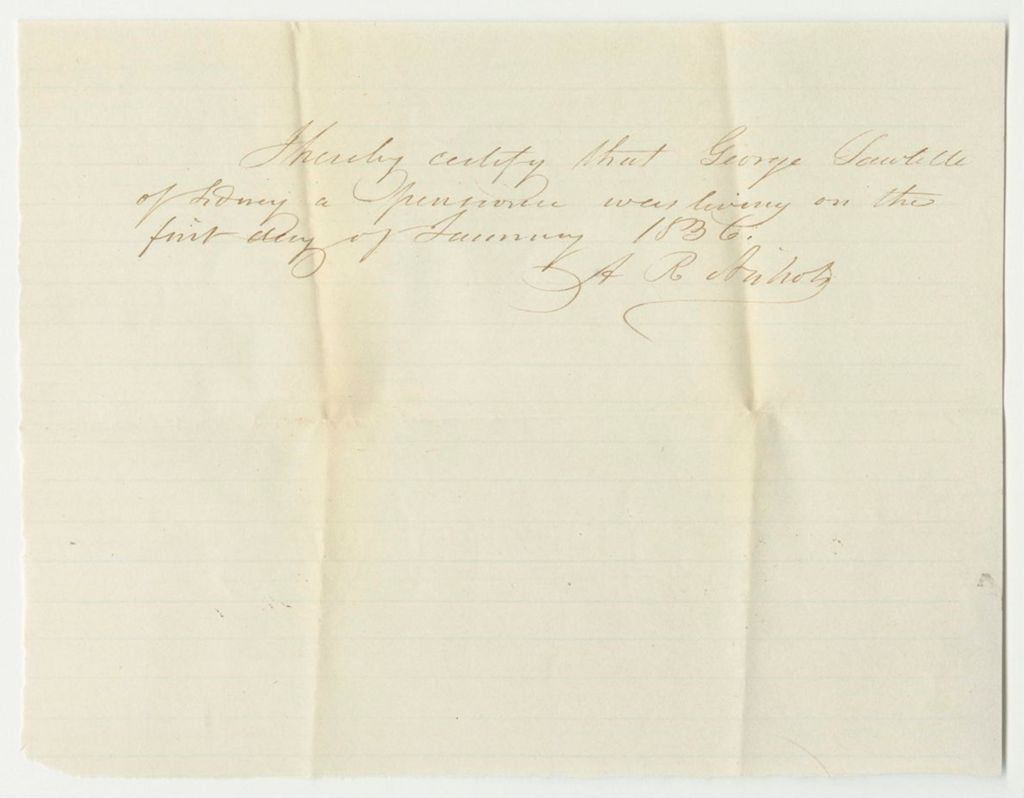 I hereby certify that George Sawtelle
of Sidney a Pensioner was living on the
first day of January 1836.
A R Nichols